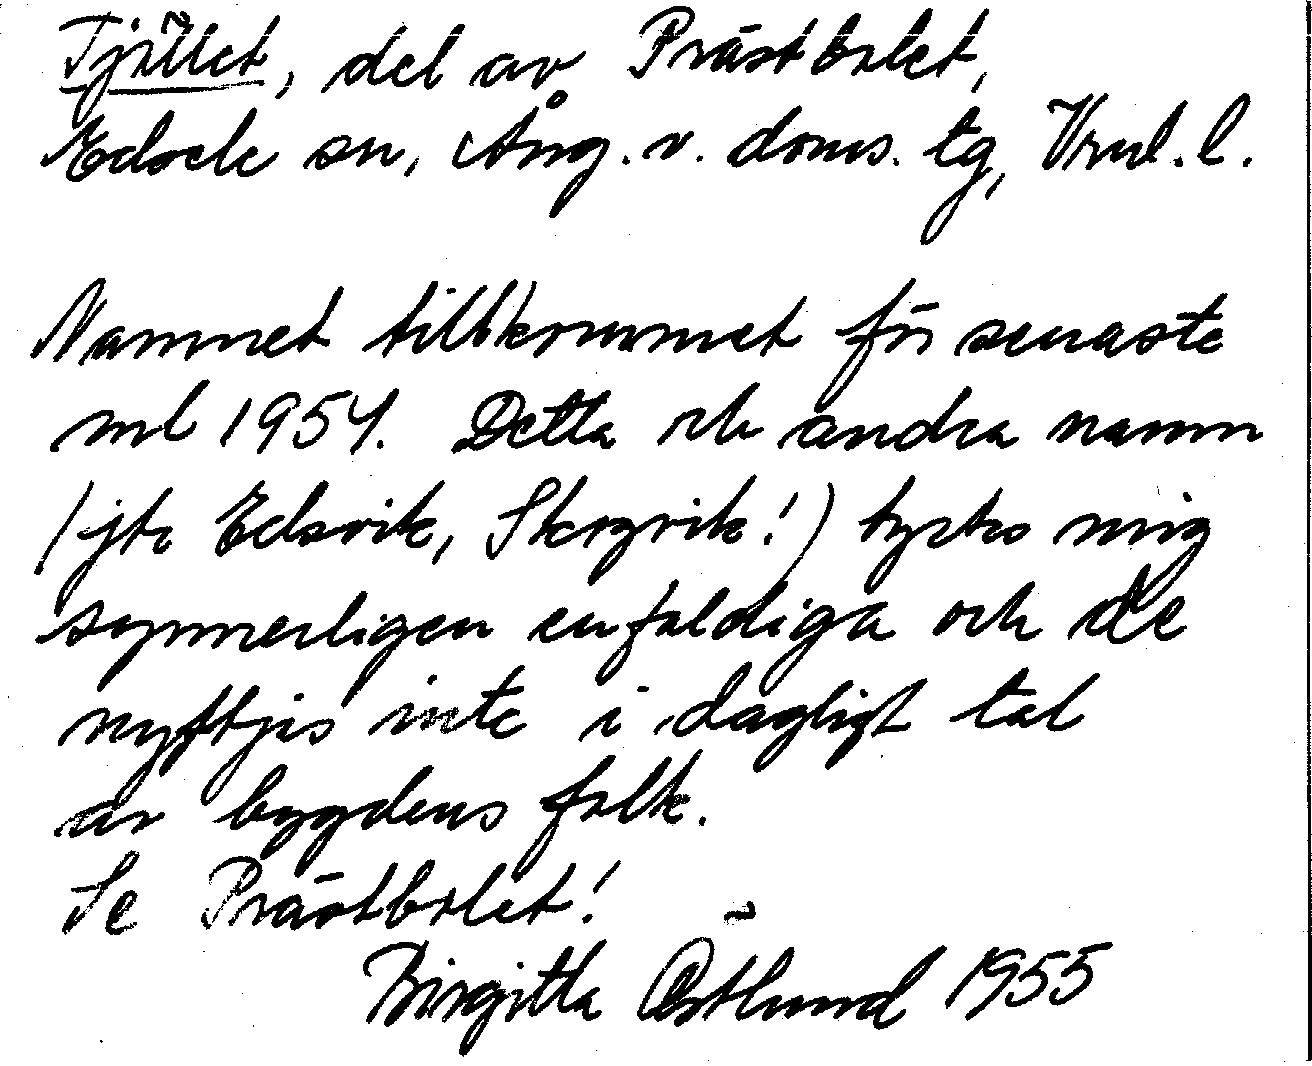 Tjället, del av Prästbolet,
Edsele sn, Ång. v. doms. tg, Vrnl. l.
Namnet tillkommet för senaste
ml 1954. Detta och andra namn
(jfr Edsvik, Skogvik!) tycks mig
synnerligen enfaldiga och de
nyttjis inte i dagligt tal
av bygdens folk.
Se Prästbolet!
Birgitta Östlund 1955